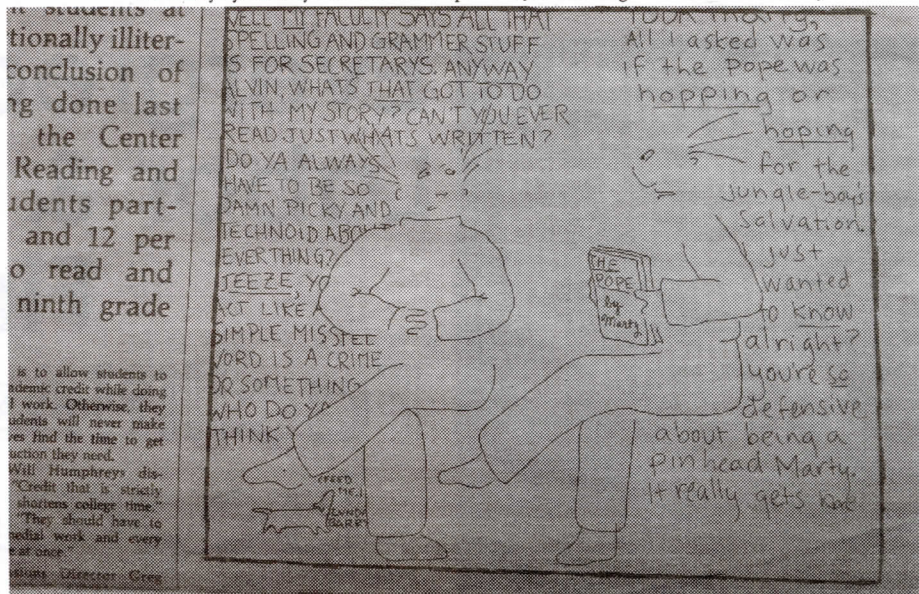 students at
tionally illiter-
conclusion of
ng done last
the Center
Reading and
idents part-
and 12 per
o read and
ninth grade
is to allow students to
ademic credit while doing
l work. Otherwise, they
udents will never make
ves find the time to get
uction they need.
Will Humphreys dis-
"Credit that is strictly
shortens college time."
"They should have to
medial work and every
e at once."
ssions Director Greg
WELL MY FACULTY SAYS ALL THAT
SPELLING AND GRAMMER STUFF
IS FOR SECRETARYS. ANYWAY
ALVIN, WHATS THAT GOT TO DO
WITH MY STORY? CAN'T YOU EVER
READ JUST WHATS WRITTEN?
DO YA ALWAYS
HAVE TO BE SO
DAMN PICKY AND
TECHNOID ABOUT
EVERTHING?
JEEZE, YO
ACT LIKE A
SIMPLE MISSPEL
WORD IS A CRIME
OR SOMETHING
WHO DO YA
THINK Y
LOOK Marty,
All I asked was
if the Pope was
hopping or
hoping
for the
jungle-boy's
Salvation.
just
wanted
to know
alright?
you're so
defensive
about being a
pinhead Marty.
It really gets
THE
POPE
by
Marty
FEED
ME!
LYNDA
BARRY